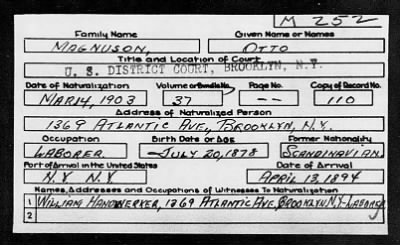 M 252
Family Name Given Name or Names
MAGNUSON, OTTO
Title and Location of Court
U. S. DISTRICT COURT, BROOKLYN, N.Y.
Date of Naturalization Volume or Bundle No. Page No. Copy of Record No.
MAR 14, 1903 37 -- 110
Address of Naturalized Person
1369 ATLANTIC AVE., BROOKLYN, N.Y.
Occupation Birth Date or Age Former Nationality
LABORER JULY 20, 1878 SCANDINAVIAN.
Port of Arrival in the United States Date of Arrival
N.Y. N.Y. APRIL 13, 1894
Names, Addresses and Occupations of Witnesses To Naturalization
1 WILLIAM HANDWERKER, 1369 ATLANTIC AVE, BROOKLYN N.Y- LABORER
2